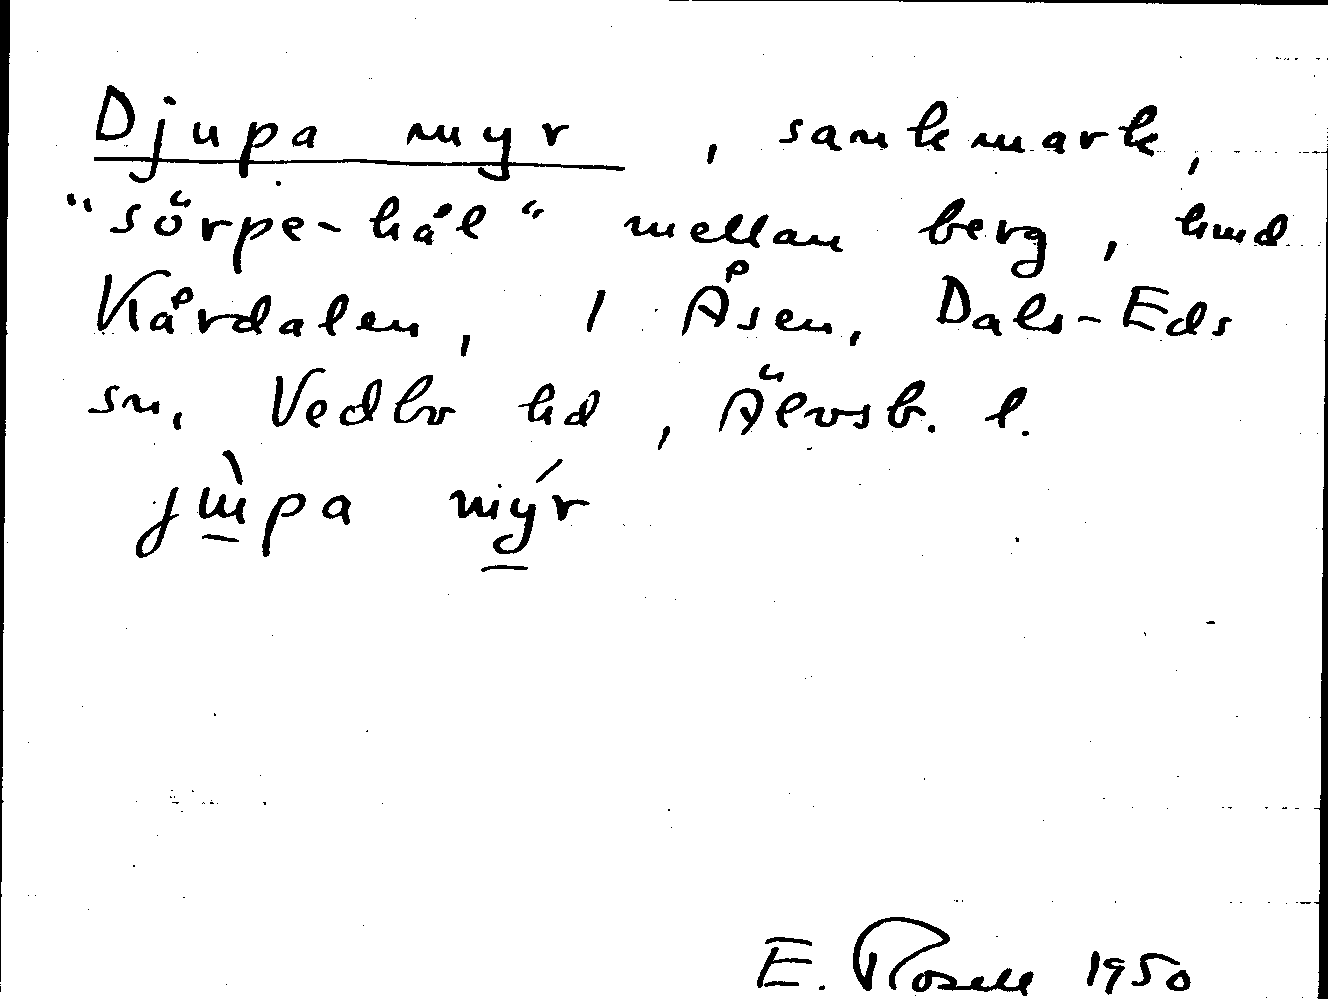 Djupa myr, sankmark,
"sörpe-hål" mellan berg, hmd
Kårdalen, 1 Åsen, Dals-Eds
sn, Vedbo hd, Älvsb. l.
jùpa mýr
E. Rosell 1950